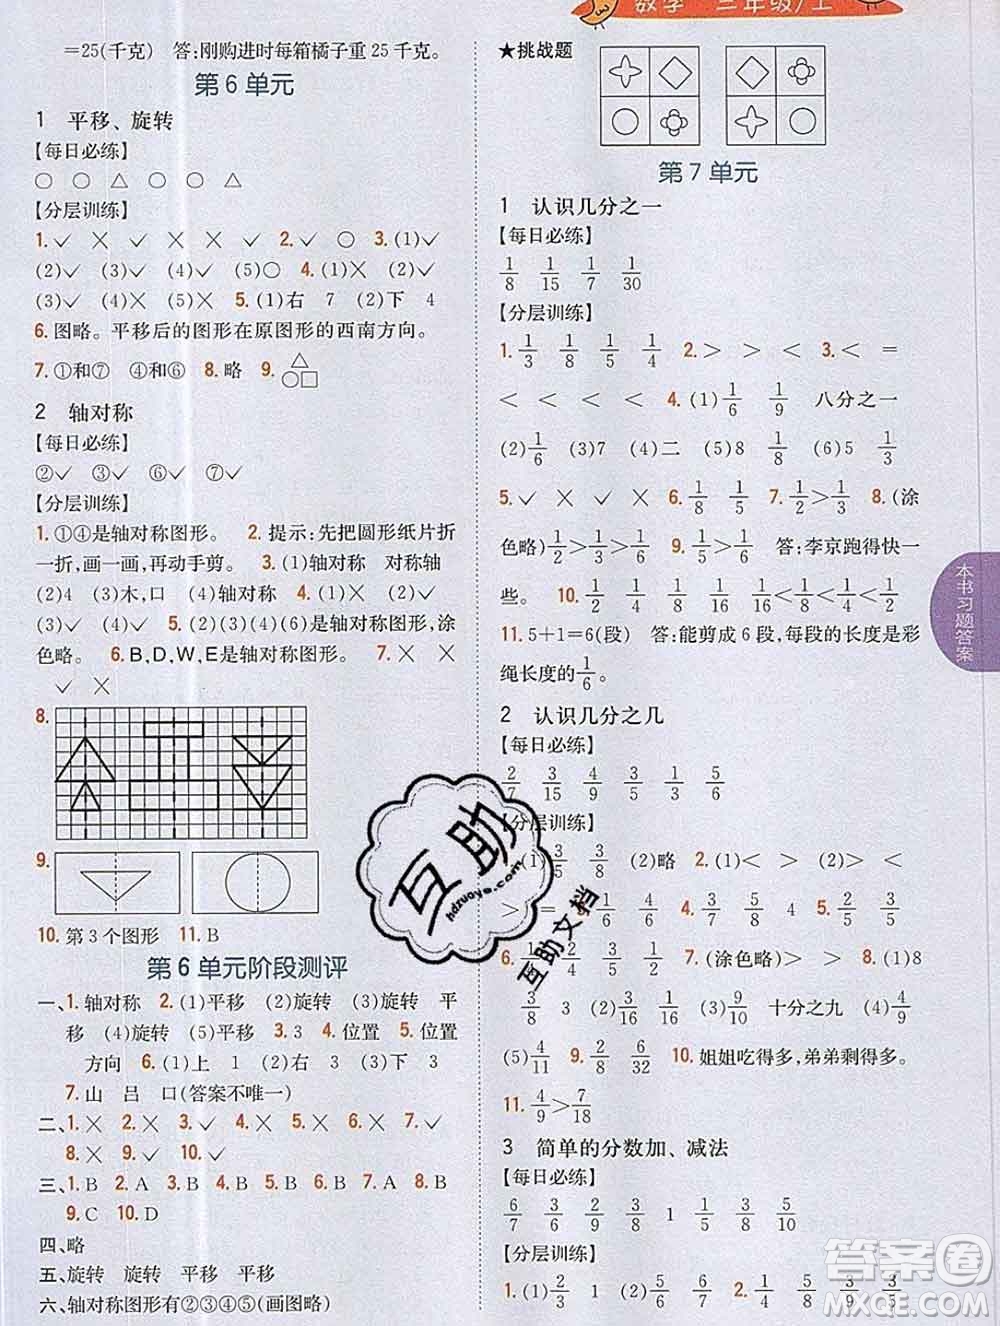 数学 三年级/上
=25(千克) 答:刚购进时每箱橘子重 25 千克。
第 6 单元
1 平移、旋转
【每日必练】
○ ○ △ ○ ○ ○ △
【分层训练】
1.✓ ✕ ✕ ✓ ✓ ✓ 2.✓ ○ 3.(1)✓
(2)✓ (3)✓ (4)✓ (5)○ 4.(1)✕ (2)✓
(3)✓ (4)✕ 5.(1)右 7 (2)下 4
6.图略。平移后的图形在原图形的西南方向。
7.①和⑦ ④和⑥ 8.略 9. △
○□
2 轴对称
【每日必练】
②✓ ③✓ ⑤✓ ⑦✓
【分层训练】
1.①④是轴对称图形。 2.提示:先把圆形纸片折
一折,画一画,再动手剪。 3.(1)轴对称 对称轴
(2)4 (3)木,口 (4)2 4.(1)✓ (2)✓
(3)✓ (4)✓ 5.(2)(3)(4)(6)是轴对称图形,涂
色略。 6.B,D,W,E是轴对称图形。 7.✕ ✕
✕ ✓ ✓
8.
9.
10.第 3 个图形 11.B
第 6 单元阶段测评
一、1.轴对称 2.(1)平移 (2)旋转 (3)旋转 平
移 (4)旋转 (5)平移 3.3 4.位置 5.位置
方向 6.(1)上 1 (2)旋转 (3)下 3
7.山 吕 口(答案不唯一)
二、1.✕ 2.✕ 3.✓ 4.✕ 5.✕ 6.✓ 7.✓
8.✕ 9.✓ 10.✓
三、1.B 2.A 3.B 4.B 5.A 6.B 7.A 8.B
9.C 10.D
四、略
五、旋转 旋转 平移 平移
六、轴对称图形有②③④⑤(画图略)
★挑战题
第 7 单元
1 认识几分之一
【每日必练】
1/8 1/15 1/7 1/30
【分层训练】
1. 1/3 1/8 1/5 1/4 2.> > < 3.< =
< < < < 4.(1)1/6 1/9 八分之一
(2)1/6 (3)7 (4)二 (5)8 (6)5
5.✓ ✕ ✕ ✓ 6.1/8 1/5 7.1/2>1/4 8.(涂
色略)1/2>1/5 9.1/5>1/6 答:李京跑得快一
些。 10.1/2 1/4 1/8 1/16 1/16<1/8<1/4<1/2
11.5+1=6(段) 答:能剪成 6 段,每段的长度是彩
绳长度的1/6。
2 认识几分之几
【每日必练】
2/7 3/15 4/8 3/5 1/6 5/6
【分层训练】
1.(1)3/5 3/8 (2)略 2.> < > <
> = 4.3/7 5/8 4 2/5 3/5
6.1/9 2/9 4/9 7.(涂色略)> > 8.(1)8
3/8 3 (2)3/16 (3)9/10 十分之九 (4)4/9
(5)4/11 9.6/32 6/32 10.姐姐吃得多,弟弟剩得多。
11.4/9>7/18
3 简单的分数加、减法
【每日必练】
6/7 3/6 5/9 3/8 1 5/7 5/12
【分层训练】
本书习题答案
互助
hdzuoye.com
互助文档
答案圈
MXQE.COM